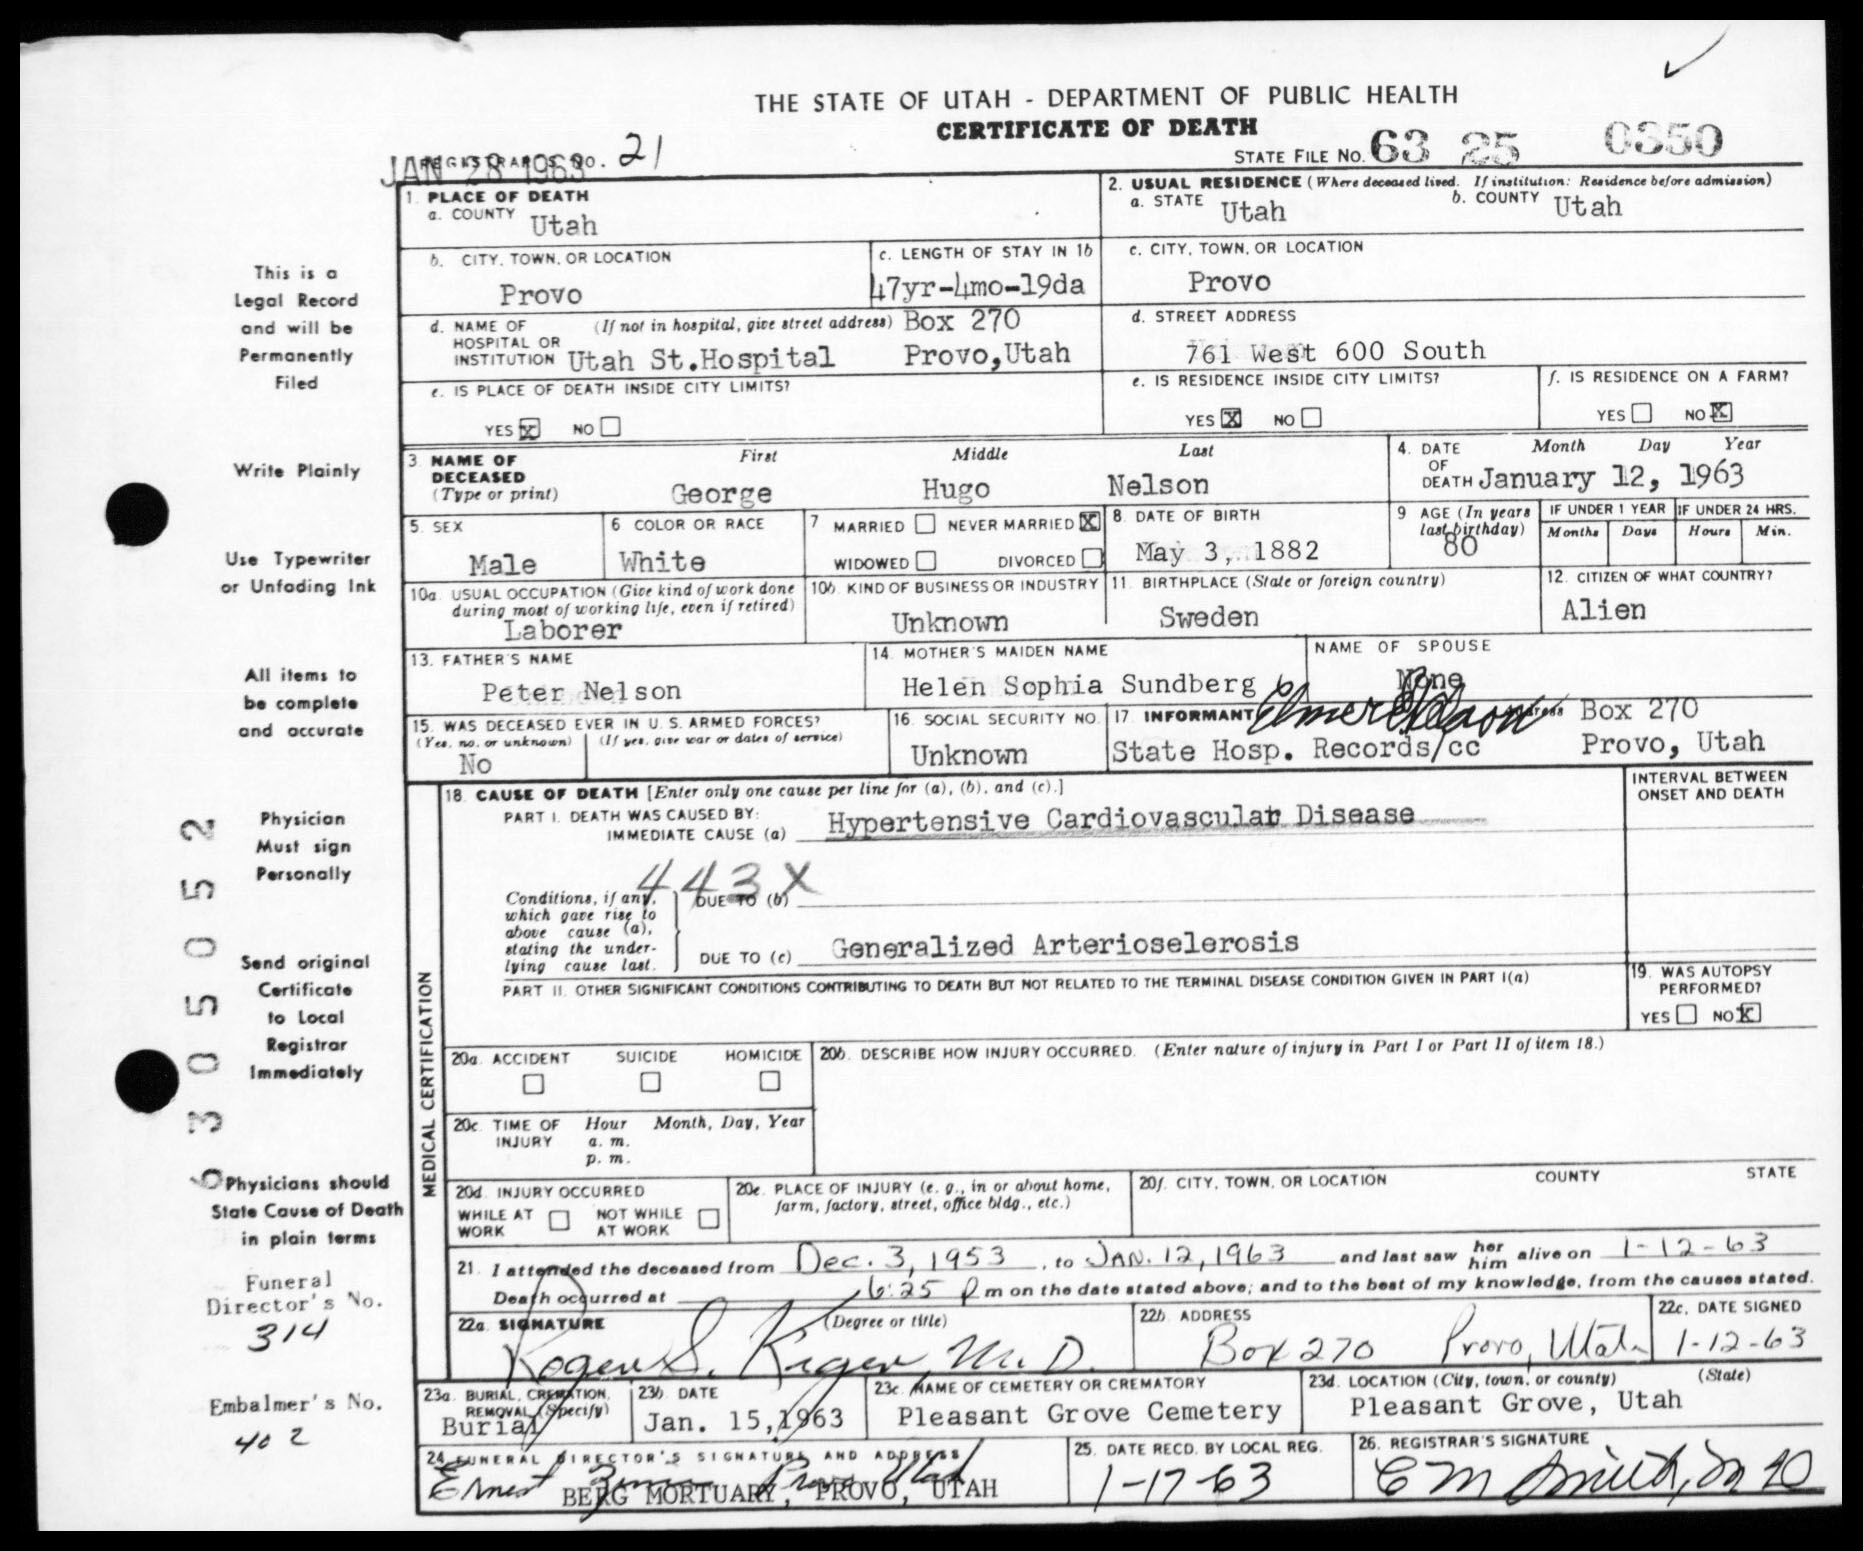 THE STATE OF UTAH - DEPARTMENT OF PUBLIC HEALTH
CERTIFICATE OF DEATH
REGISTRAR'S NO. 21
JAN 28 1963
STATE FILE NO. 63 25 0350
1. PLACE OF DEATH
a. COUNTY Utah
2. USUAL RESIDENCE (Where deceased lived. If institution: Residence before admission)
a. STATE Utah b. COUNTY Utah
b. CITY, TOWN, OR LOCATION
Provo
c. LENGTH OF STAY IN 1b
47yr-4mo-19da
c. CITY, TOWN, OR LOCATION
Provo
d. NAME OF HOSPITAL OR INSTITUTION (If not in hospital, give street address) Box 270
Utah St.Hospital Provo,Utah
d. STREET ADDRESS
761 West 600 South
e. IS PLACE OF DEATH INSIDE CITY LIMITS?
YES X NO
e. IS RESIDENCE INSIDE CITY LIMITS?
YES X NO
f. IS RESIDENCE ON A FARM?
YES NO X
3. NAME OF DECEASED (Type or print)
First Middle Last
George Hugo Nelson
4. DATE OF DEATH Month Day Year
January 12, 1963
5. SEX
Male
6 COLOR OR RACE
White
7 MARRIED NEVER MARRIED X
WIDOWED DIVORCED
8. DATE OF BIRTH
May 3, 1882
9 AGE (In years last birthday)
80
IF UNDER 1 YEAR
Months Days
IF UNDER 24 HRS.
Hours Min.
10a. USUAL OCCUPATION (Give kind of work done during most of working life, even if retired)
Laborer
10b. KIND OF BUSINESS OR INDUSTRY
Unknown
11. BIRTHPLACE (State or foreign country)
Sweden
12. CITIZEN OF WHAT COUNTRY?
Alien
13. FATHER'S NAME
Peter Nelson
14. MOTHER'S MAIDEN NAME
Helen Sophia Sundberg
NAME OF SPOUSE
None
15. WAS DECEASED EVER IN U. S. ARMED FORCES?
(Yes, no, or unknown) (If yes, give war or dates of service)
No
16. SOCIAL SECURITY NO.
Unknown
17. INFORMANT Elmer Nelson Address Box 270
State Hosp. Records/cc Provo, Utah
MEDICAL CERTIFICATION
18. CAUSE OF DEATH [Enter only one cause per line for (a), (b), and (c).]
INTERVAL BETWEEN ONSET AND DEATH
PART I. DEATH WAS CAUSED BY:
IMMEDIATE CAUSE (a) Hypertensive Cardiovascular Disease
443X
Conditions, if any, which gave rise to above cause (a), stating the underlying cause last.
DUE TO (b)
DUE TO (c) Generalized Arterioselerosis
PART II. OTHER SIGNIFICANT CONDITIONS CONTRIBUTING TO DEATH BUT NOT RELATED TO THE TERMINAL DISEASE CONDITION GIVEN IN PART I(a)
19. WAS AUTOPSY PERFORMED?
YES NO X
20a. ACCIDENT SUICIDE HOMICIDE
20b. DESCRIBE HOW INJURY OCCURRED. (Enter nature of injury in Part I or Part II of item 18.)
20c. TIME OF INJURY Hour Month, Day, Year
a. m.
p. m.
20d. INJURY OCCURRED
WHILE AT WORK NOT WHILE AT WORK
20e. PLACE OF INJURY (e. g., in or about home, farm, factory, street, office bldg., etc.)
20f. CITY, TOWN, OR LOCATION COUNTY STATE
21. I attended the deceased from Dec. 3, 1953, to JAN. 12, 1963 and last saw her him alive on 1-12-63
Death occurred at 6:25 P m on the date stated above; and to the best of my knowledge, from the causes stated.
22a. SIGNATURE (Degree or title)
Roger S. Kiger, M. D.
22b. ADDRESS
Box 270 Provo, Utah
22c. DATE SIGNED
1-12-63
23a. BURIAL, CREMATION, REMOVAL (Specify)
Burial
23b. DATE
Jan. 15, 1963
23c. NAME OF CEMETERY OR CREMATORY
Pleasant Grove Cemetery
23d. LOCATION (City, town, or county) (State)
Pleasant Grove, Utah
24. FUNERAL DIRECTOR'S SIGNATURE AND ADDRESS
Ernest Provo Utah
BERG MORTUARY, PROVO, UTAH
25. DATE RECD. BY LOCAL REG.
1-17-63
26. REGISTRAR'S SIGNATURE
C M Smith, M D
This is a
Legal Record
and will be
Permanently
Filed
Write Plainly
Use Typewriter
or Unfading Ink
All items to
be complete
and accurate
Physician
Must sign
Personally
Send original
Certificate
to Local
Registrar
Immediately
Physicians should
State Cause of Death
in plain terms
Funeral
Director's No.
314
Embalmer's No.
402
6305052